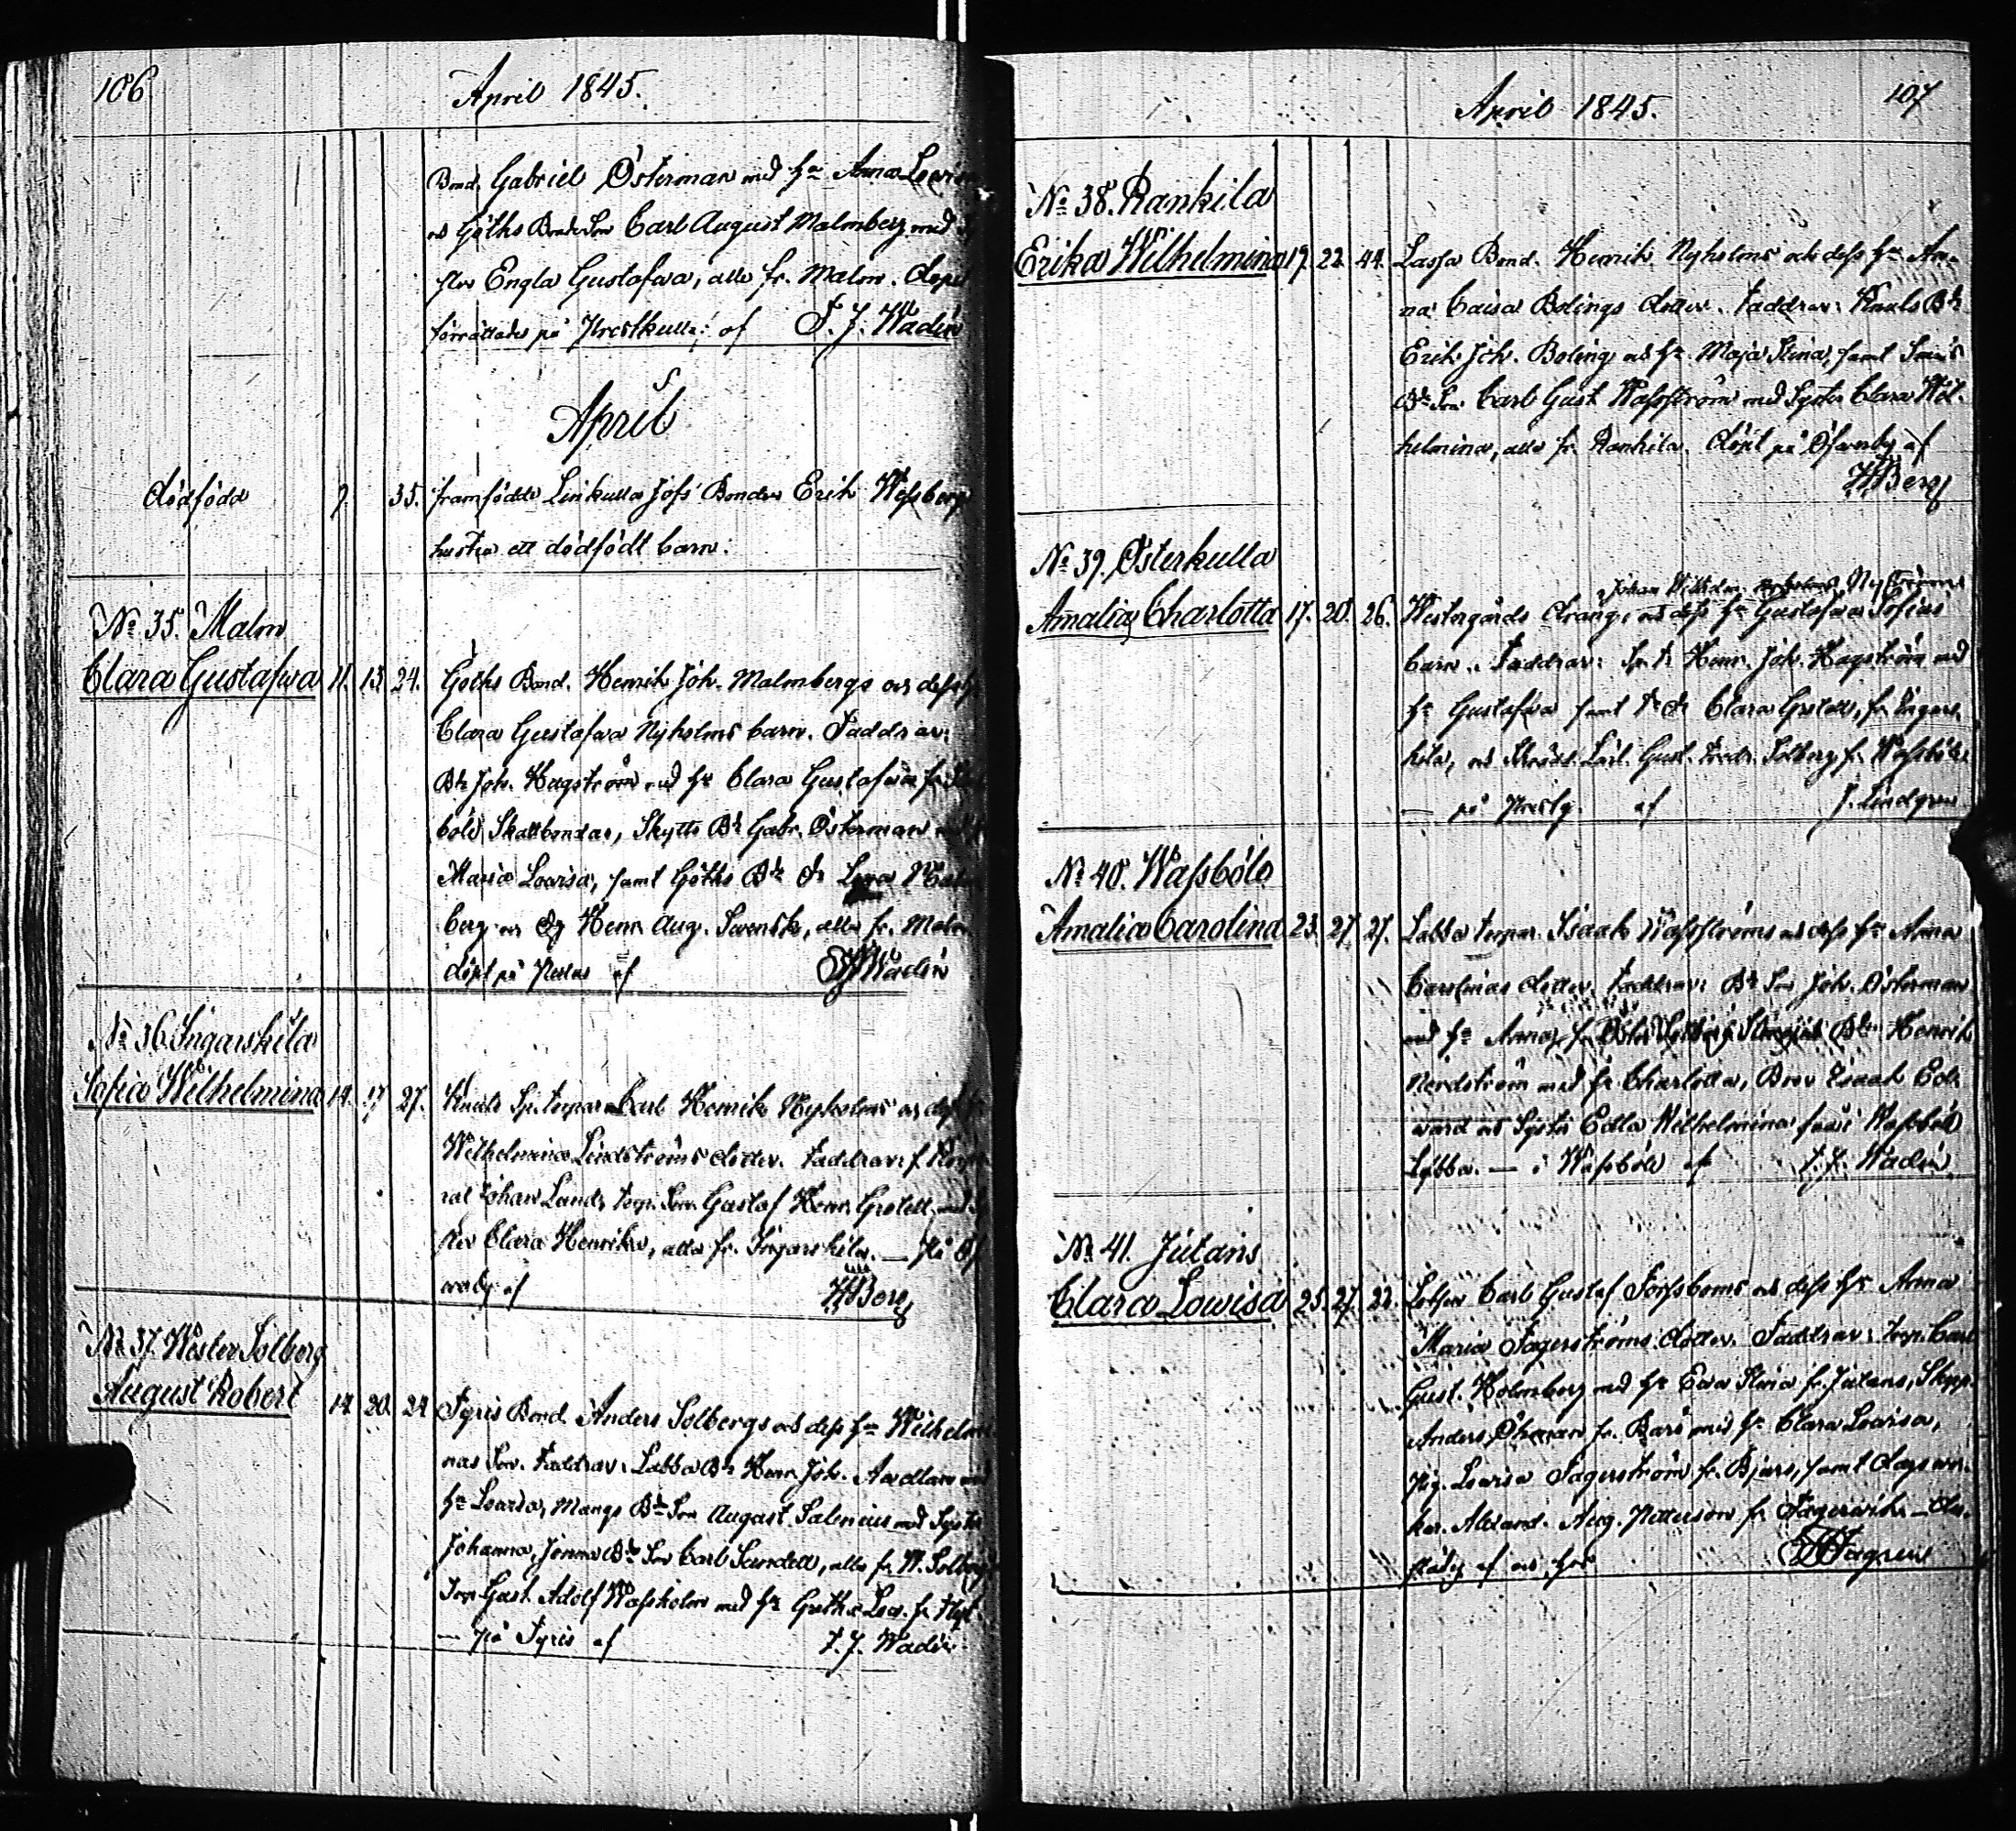 106
April 1845.
Bond. Gabriel Österman med Hu Anna Lovisa
os Göths Bonde Son Carl August Malmberg med
ster Engla Gustafva, alla fr. Malm. Döpel
förrättades på Prestkulla: af F. J. Wadén
April
dödfödd 7. 35. framfödde Linkulla Jofs Bonden Erik Wessberg
hustru ett dödfödt barn.
No 35. Malm
Clara Gustafva 11. 13. 24. Göths Bond. Henrik Joh. Malmbergs os dess
Clara Gustafva Nyholms barn. Faddrar:
Bde Joh. Hagström med Hu Clara Gustafva fr.
böle Skattbonda, Skytts Bde Gabr. Österman med
Maria Lovisa, samt Göths Bde Dr Lova Malm
berg os Dg Henr. Aug. Svensk, alla fr. Malm
döpt på af Wadén
No 36. Ingarskila
Sofia Wilhelmina 14. 17. 27. Knuts Sp. torparn Carl Henrik Nyholms os dess
Wilhelmina Lindströms dotter. Faddrar: f.
ral Johan Lund, torp. Son Gustaf Henr. Grotell med
ster Clara Henrika, alla fr. Ingarskila. — På Öf
verby af HBerg
No 37. Wester Solberg
August Robert 14. 20. 24. Tyris Bond. Anders Solbergs os dess Hu Wilhelmi
nas Son. Faddrar: Labba Bde Henr. Joh. Aadlam med
Hu Lovisa, Mangs Bde Son August Salenius med Syster
Johanna, Jönns Bde Son Carl Sundell, alla fr. W. Solberg
Gust. Adolf Wassholm med Hu Greta Lov. fr.
— på Tyris af F. J. Wadén
April 1845. 107
No 38. Rankila
Erika Wilhelmina 19. 22. 44. Lassa Bond. Henrik Nyholms och dess Hu An-
na Caisa Bolings dotter. Faddrar: Knuts Bde
Erik Joh. Boling os Hu Maja Stina, samt
Bde Son Carl Gust. Wassström med Syster Clara Wil-
helmina, alla fr. Rankila. Döpt på Öfverby af
HBerg
No 39. Österkulla
Johan Wilhelm Nyströms
Amalia Charlotta 17. 20. 26. Westergårds Dräng, os dess Hu Gustafva Sofias
barn. Faddrar: Henr. Joh. Hagström med
Hu Gustafva samt Clara Grotell, fr. Ingars-
kila, os Gust. Fredr. Solberg fr. Wassböle
— på Prestg. af J. Lindgren.
No 40. Wassböle
Amalia Carolina 23. 27. 27. Labba torpar. Isaak Wassströms os dess Hu Anna
Carolinas dotter. Faddrar: Bde Son Joh. Österman
med Hu Anna, fr. Bde Henrik
Nordström med Hu Charlotta, Bror Isaak Ed-
vard os Syster Edla Wilhelmina från Wassböle
Labba. — i Wassböle af F. J. Wadén
No 41. Jutans
Clara Lowisa 25. 27. 22. Lotsen Carl Gustaf Forssboms os dess Hu Anna
Maria Fagerströms dotter. Faddrar: torp. Carl
Gust. Holmberg med Hu Eva Stina fr. Jutans, Skepp.
Anders Öhman fr. Barö med Hu Clara Lovisa,
Pig. Lovisa Fagerström fr. Bjärs, samt Dagsver-
kar. Alexand. Aug. Petterson fr. Fagervik. —
af Fagren